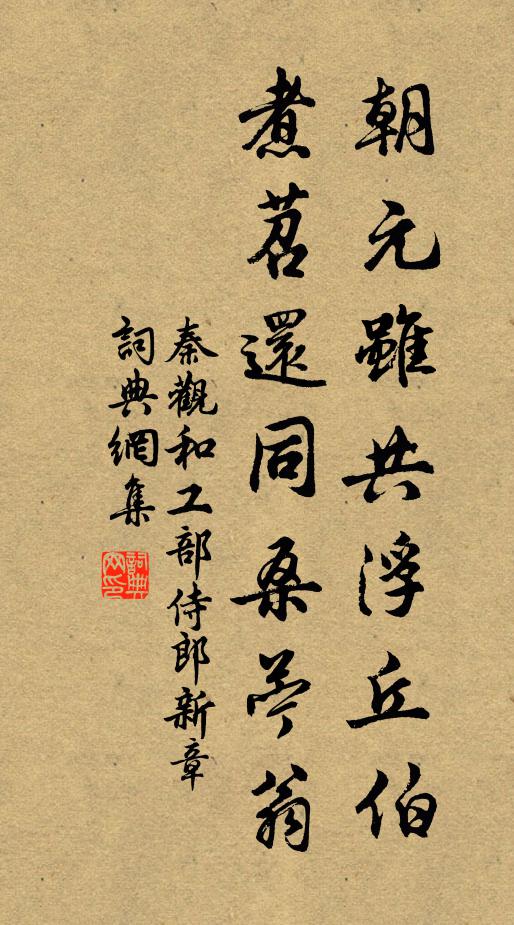 朝元雖共浮丘伯
煮茗還同桑苧翁
秦觀和工部侍郎新章
詞典網集
詞典网印